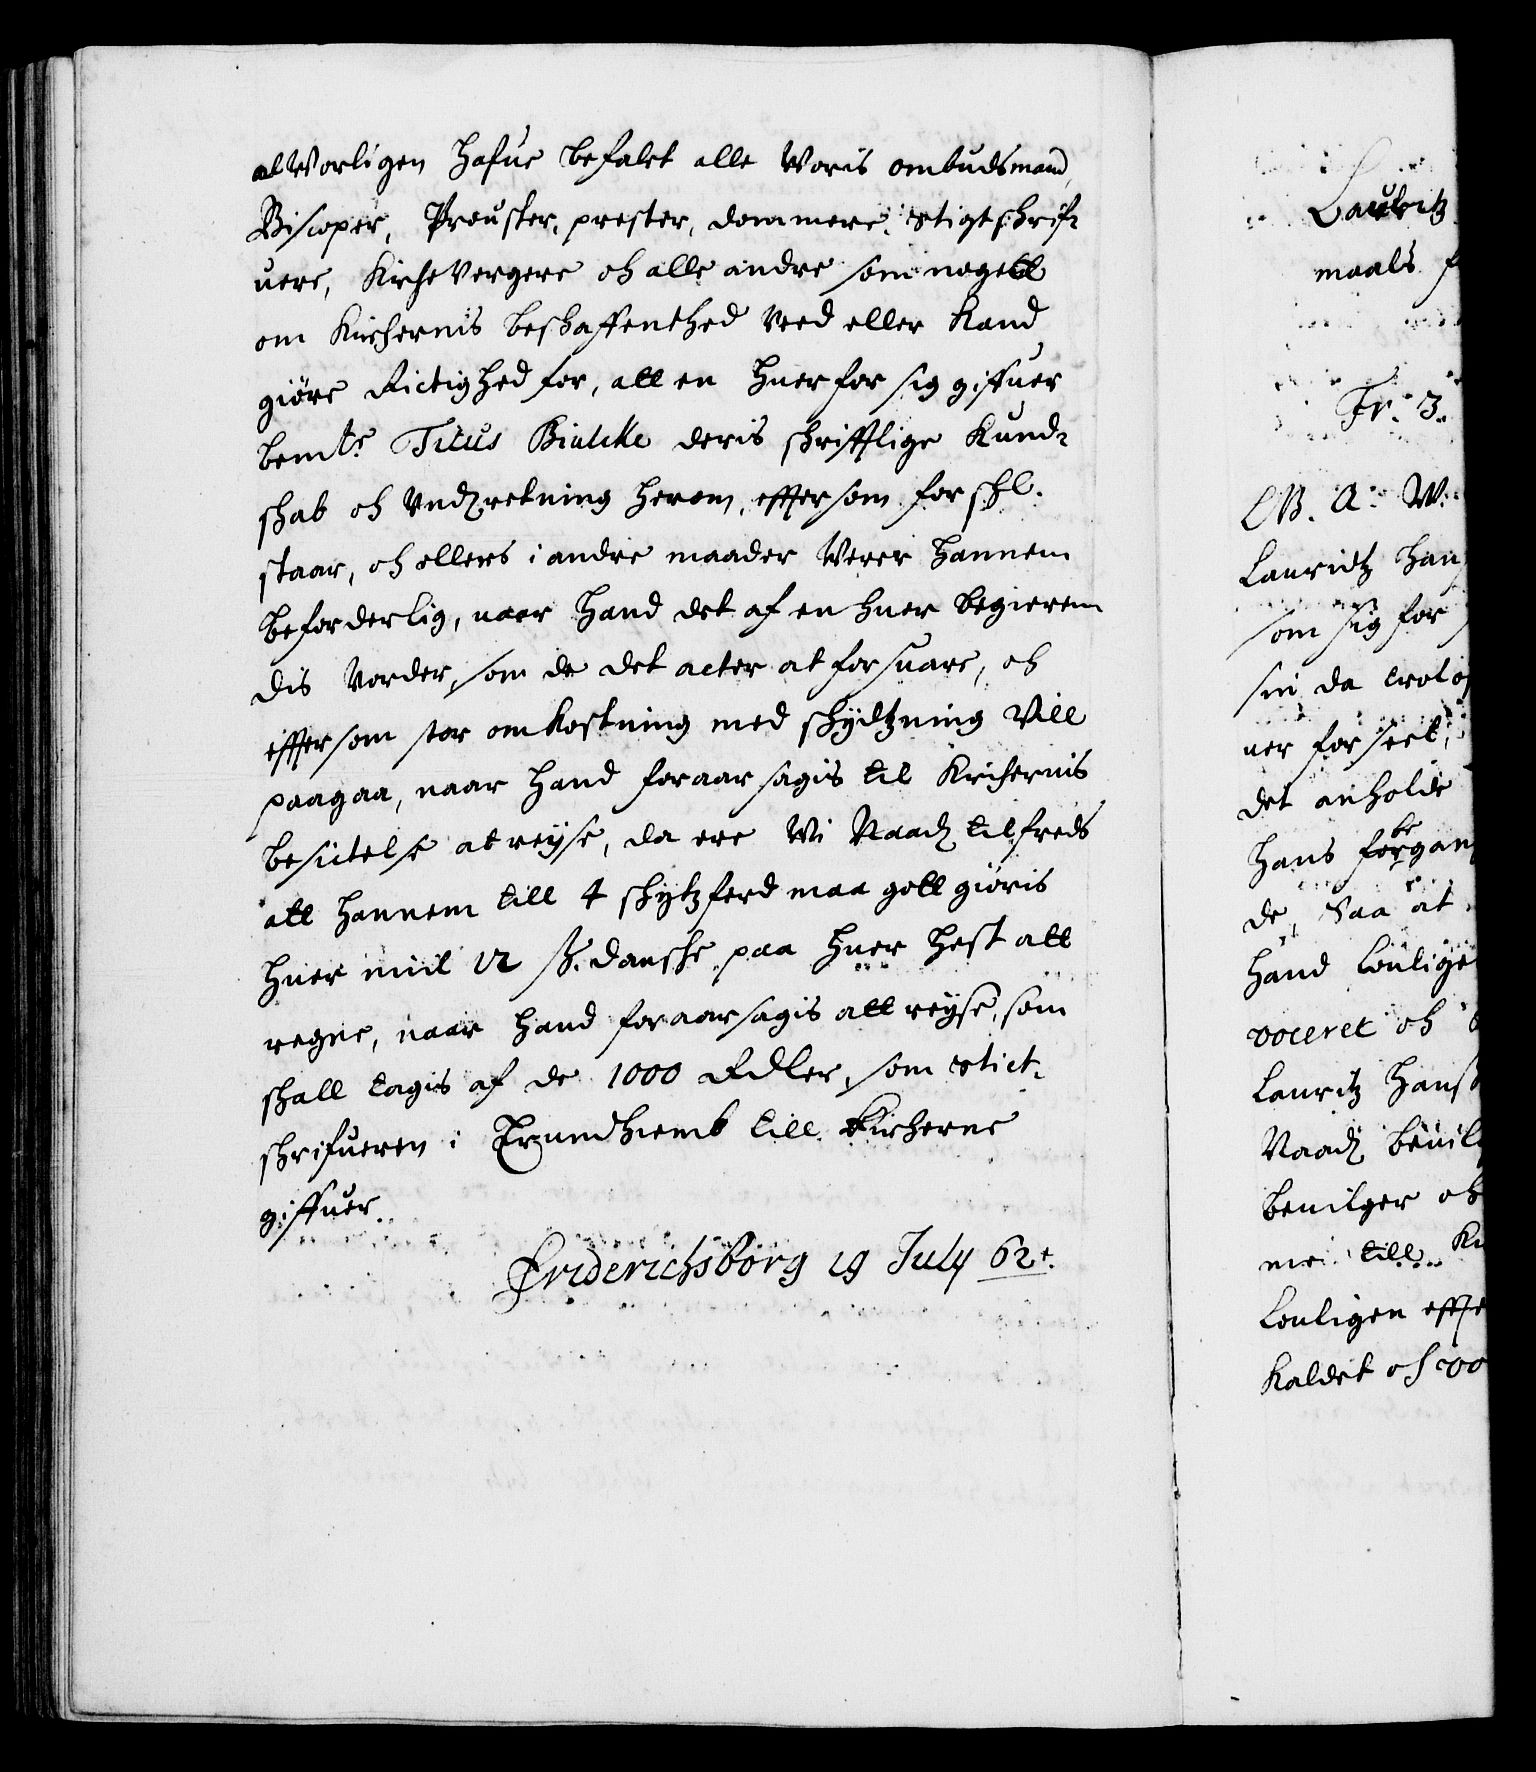 alWorligen hafue befalet alle Woris ombudsmand,
Biscoper, Prouster, prester, dommere, stigtschrif-
uere, KircheVergere och alle andre som nogett
om Kirchernis beschaffenthed Veed eller Kand
giøre Rictighed for, att en huer for sig giffuer
bemte Titus Bielcke deris schrifftlige Kund-
schab och Vndretning herom, effter som for schl.
staar, och ellers i andre maader Verer hannem
beforderlig, naar hand det af en huer begieren-
dis Vorder, som de det acter at forsuare, och
effter som stor omkostning med schydtzning Vill
paagaa, naar hand foraarsagis til Kirchernis
besictelse at reyse, da ere Wi Naadl tilfreds
att hannem till 4 schytzferd maa gott giøris
huer miil 12 ß. dansche paa huer hest att
regne, naar hand foraarsagis att reyse, som
schall tagis af de 1000 Rdler, som stict-
schrifueren i Trundhiemb till Kircherne
giffuer
Friderichsborg 19 July 62t.
Lauritz
maals
Fr: 3.
Lauridtz Han
som sig for
sin da
uer forseet,
det anholde
hans be
de, Saa at
hand Loulige
voceret och
Lauritz Hanß
Naadl beuil
beuilger och
me till
Louligen effte
Kaldet och vo